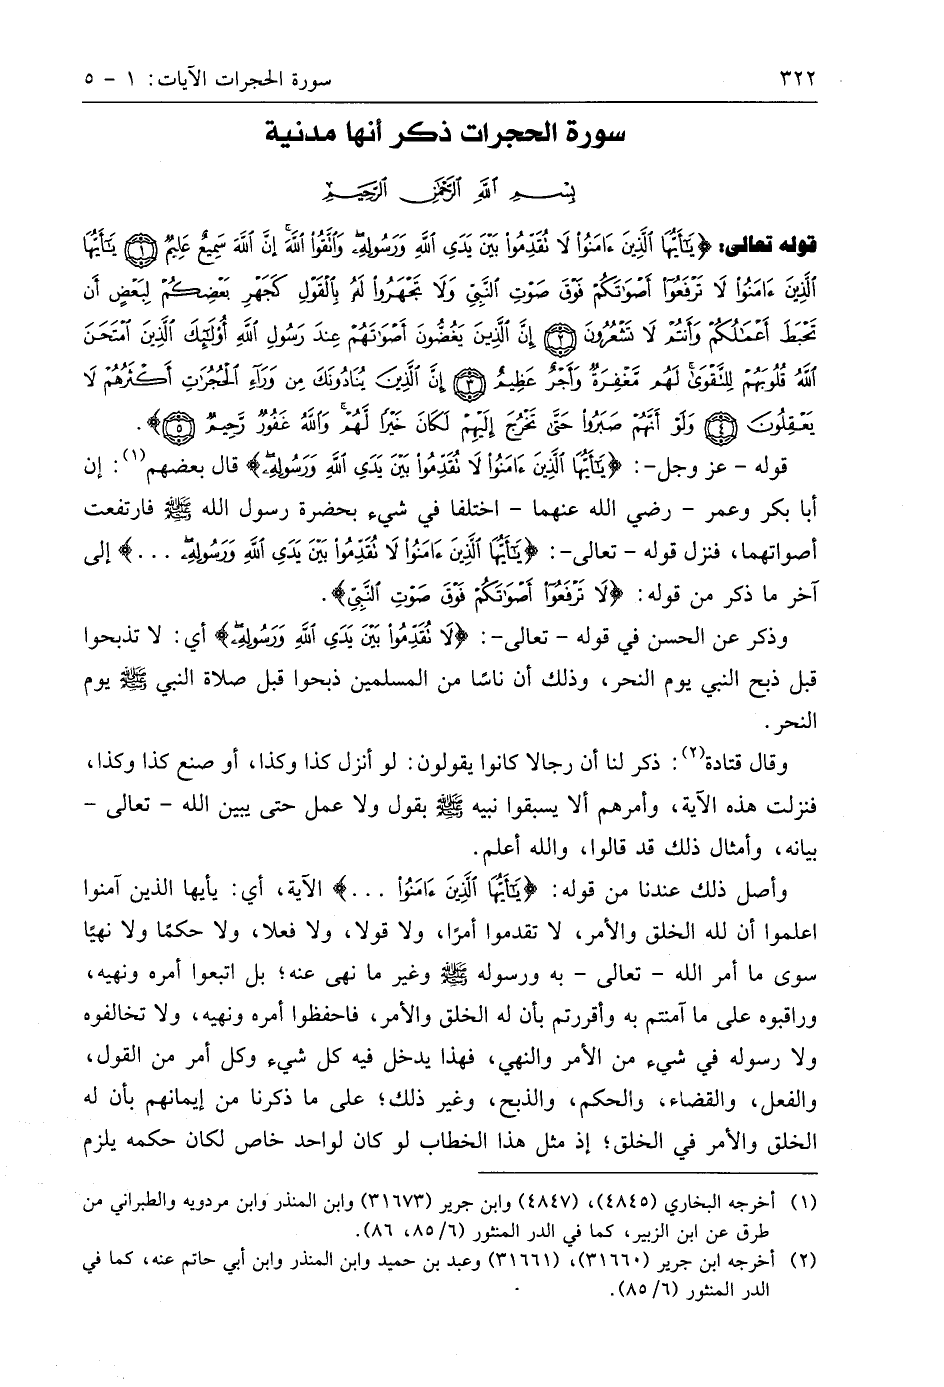 ٣٢٢ سورة الحجرات الآيات: ١ - ٥
سورة الحجرات ذكر أنها مدنية
بِسْمِ اللَّهِ الرَّحْمَٰنِ الرَّحِيمِ
قوله تعالى: ﴿يَٰٓأَيُّهَا ٱلَّذِينَ ءَامَنُوا۟ لَا نُقَدِّمُوا۟ بَيْنَ يَدَىِ ٱللَّهِ وَرَسُولِهِۦ وَٱنَّقُوا۟ ٱللَّهَ إِنَّ ٱللَّهَ سَمِيعٌ عَلِيمٌ ﴿١﴾ يَٰٓأَيُّهَا
ٱلَّذِينَ ءَامَنُوا۟ لَا تَرْفَعُوٓا۟ أَصْوَٰتَكُمْ فَوْقَ صَوْتِ ٱلنَّبِىِّ وَلَا تَجْهَرُوا۟ لَهُۥ بِٱلْقَوْلِ كَجَهْرِ بَعْضِكُمْ لِبَعْضٍ أَن
تَحْبَطَ أَعْمَٰلُكُمْ وَأَنتُمْ لَا تَشْعُرُونَ ﴿٢﴾ إِنَّ ٱلَّذِينَ يَغُضُّونَ أَصْوَٰتَهُمْ عِندَ رَسُولِ ٱللَّهِ أُو۟لَٰٓئِكَ ٱلَّذِينَ ٱمْتَحَنَ
ٱللَّهُ قُلُوبَهُمْ لِلتَّقْوَىٰ لَهُم مَّغْفِرَةٌ وَأَجْرٌ عَظِيمٌ ﴿٣﴾ إِنَّ ٱلَّذِينَ يُنَادُونَكَ مِن وَرَآءِ ٱلْحُجُرَٰتِ أَكْثَرُهُمْ لَا
يَعْقِلُونَ ﴿٤﴾ وَلَوْ أَنَّهُمْ صَبَرُوا۟ حَتَّىٰ تَخْرُجَ إِلَيْهِمْ لَكَانَ خَيْرًا لَّهُمْ وَٱللَّهُ غَفُورٌ رَّحِيمٌ ﴿٥﴾﴾.
قوله - عز وجل -: ﴿يَٰٓأَيُّهَا ٱلَّذِينَ ءَامَنُوا۟ لَا نُقَدِّمُوا۟ بَيْنَ يَدَىِ ٱللَّهِ وَرَسُولِهِۦ﴾ قال بعضهم(١): إن
أبا بكر وعمر - رضي الله عنهما - اختلفا في شيء بحضرة رسول الله ﷺ فارتفعت
أصواتهما، فنزل قوله - تعالى -: ﴿يَٰٓأَيُّهَا ٱلَّذِينَ ءَامَنُوا۟ لَا نُقَدِّمُوا۟ بَيْنَ يَدَىِ ٱللَّهِ وَرَسُولِهِۦ ...﴾ إلى
آخر ما ذكر من قوله: ﴿لَا تَرْفَعُوٓا۟ أَصْوَٰتَكُمْ فَوْقَ صَوْتِ ٱلنَّبِىِّ﴾.
وذكر عن الحسن في قوله - تعالى -: ﴿لَا نُقَدِّمُوا۟ بَيْنَ يَدَىِ ٱللَّهِ وَرَسُولِهِۦ﴾ أي: لا تذبحوا
قبل ذبح النبي يوم النحر، وذلك أن ناسًا من المسلمين ذبحوا قبل صلاة النبي ﷺ يوم
النحر.
وقال قتادة(٢): ذكر لنا أن رجالا كانوا يقولون: لو أنزل كذا وكذا، أو صنع كذا وكذا،
فنزلت هذه الآية، وأمرهم ألا يسبقوا نبيه ﷺ بقول ولا عمل حتى يبين الله - تعالى -
بيانه، وأمثال ذلك قد قالوا، والله أعلم.
وأصل ذلك عندنا من قوله: ﴿يَٰٓأَيُّهَا ٱلَّذِينَ ءَامَنُوا۟ ...﴾ الآية، أي: يأيها الذين آمنوا
اعلموا أن لله الخلق والأمر، لا تقدموا أمرًا، ولا قولا، ولا فعلا، ولا حكمًا ولا نهيًا
سوى ما أمر الله - تعالى - به ورسوله ﷺ وغير ما نهى عنه؛ بل اتبعوا أمره ونهيه،
وراقبوه على ما آمنتم به وأقررتم بأن له الخلق والأمر، فاحفظوا أمره ونهيه، ولا تخالفوه
ولا رسوله في شيء من الأمر والنهي، فهذا يدخل فيه كل شيء وكل أمر من القول،
والفعل، والقضاء، والحكم، والذبح، وغير ذلك؛ على ما ذكرنا من إيمانهم بأن له
الخلق والأمر في الخلق؛ إذ مثل هذا الخطاب لو كان لواحد خاص لكان حكمه يلزم
(١) أخرجه البخاري (٤٨٤٥)، (٤٨٤٧) وابن جرير (٣١٦٧٣) وابن المنذر وابن مردويه والطبراني من
طرق عن ابن الزبير، كما في الدر المنثور (٦/ ٨٥، ٨٦).
(٢) أخرجه ابن جرير (٣١٦٦٠)، (٣١٦٦١) وعبد بن حميد وابن المنذر وابن أبي حاتم عنه، كما في
الدر المنثور (٦/ ٨٥).